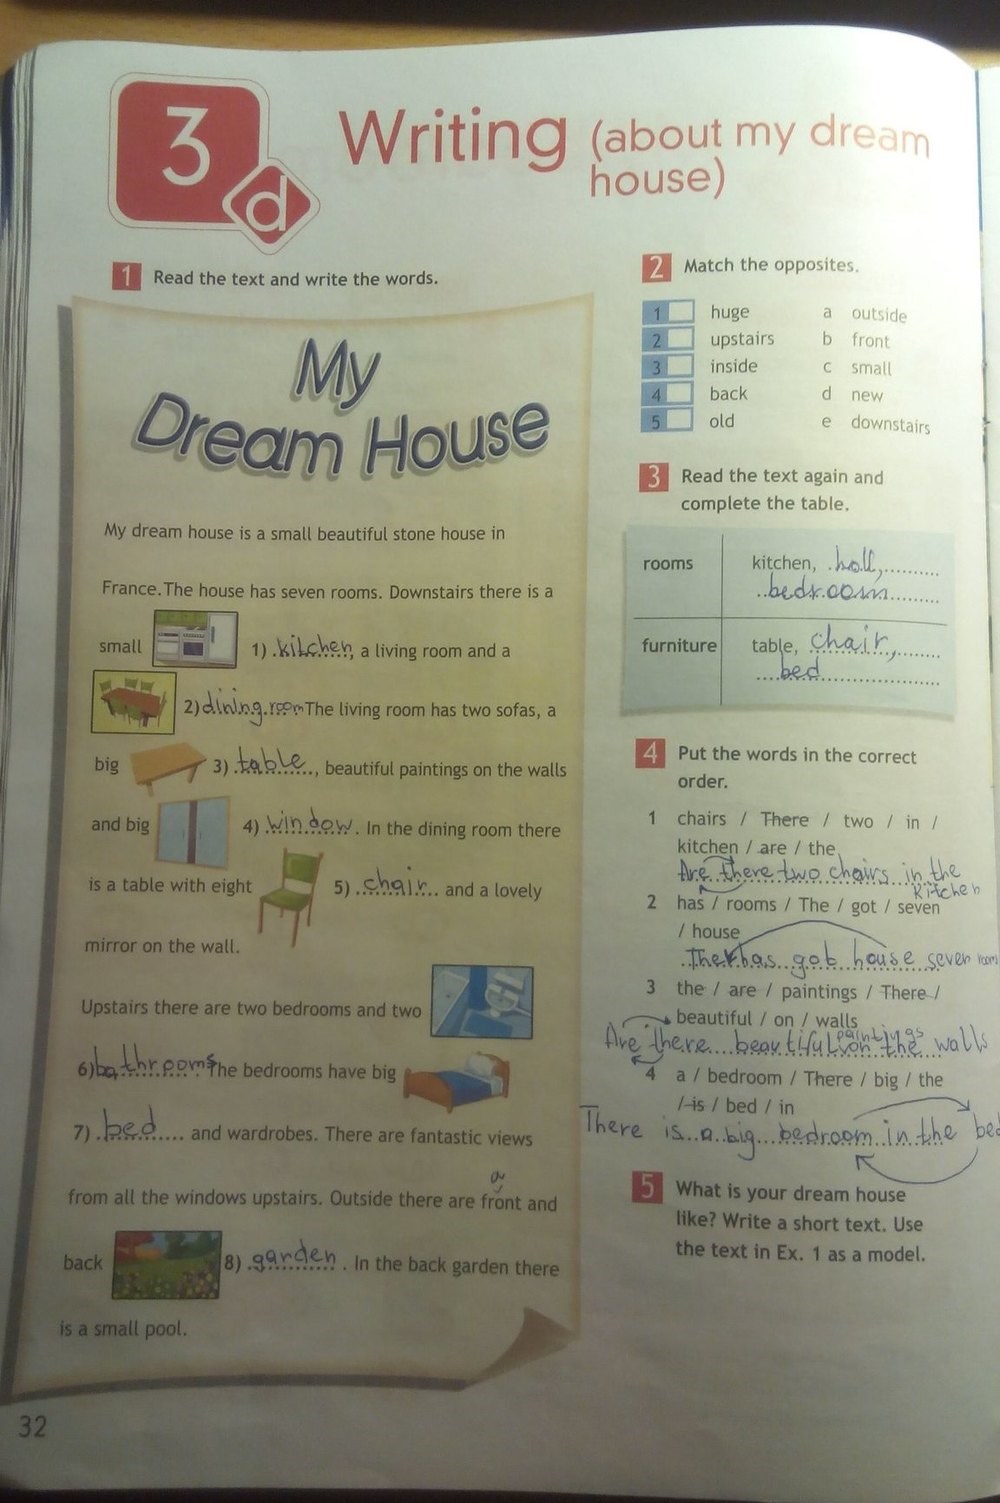 3
d
Writing (about my dream
house)
1 Read the text and write the words.
My
Dream House
My dream house is a small beautiful stone house in
France. The house has seven rooms. Downstairs there is a
small 1) kitchen, a living room and a
2) dining room The living room has two sofas, a
big 3) table, beautiful paintings on the walls
and big 4) window. In the dining room there
is a table with eight 5) chair and a lovely
mirror on the wall.
Upstairs there are two bedrooms and two
6) bathrooms The bedrooms have big
7) bed and wardrobes. There are fantastic views
a
from all the windows upstairs. Outside there are front and
back 8) garden. In the back garden there
is a small pool.
32
2 Match the opposites.
1 huge a outside
2 upstairs b front
3 inside c small
4 back d new
5 old e downstairs
3 Read the text again and
complete the table.
rooms kitchen, hall,
bedroom
furniture table, chair,
bed
4 Put the words in the correct
order.
1 chairs / There / two / in /
kitchen / are / the
Are there two chairs in the
kitchen
2 has / rooms / The / got / seven
/ house
The has got house seven rooms
3 the / are / paintings / There /
beautiful / on / walls
paintings
Are there beautiful on the walls
4 a / bedroom / There / big / the
/ is / bed / in
There is a big bedroom in the bed
5 What is your dream house
like? Write a short text. Use
the text in Ex. 1 as a model.